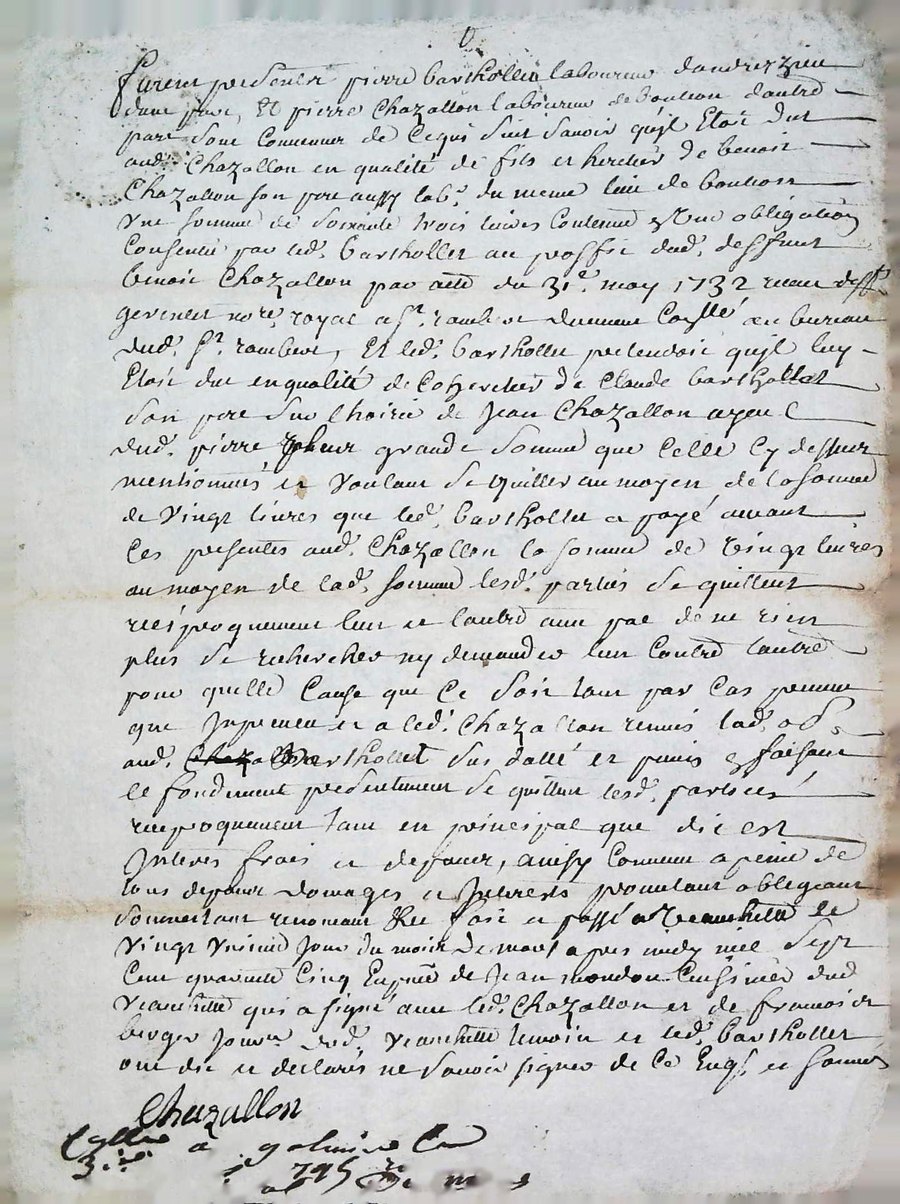 furent presents pierre barthollet laboureur dandrezieu
dune part, Et pierre Chazallon laboureur de bouthon dautre
part sont convenus de Cequi suit savoir quil Etoit dut
aud. Chazallon en qualité de fils et heritié de benoit
Chazallon son pere aussy lab.r du meme lieu de bouthon
Une somme de soixante trois livres Contenue En une obligation
Consentie par led. barthollet au proffit dud. deffunt
benoit Chazallon par acte du 31e. may 1732 recue
nore. royal a St. rambert duement Collé au bureau
dud. St. rambert, Et led. barthollet pretendoit quil luy
Etoit dut en qualité de Coheritier de Claude barthollet
son pere sur lhoirie de Jean Chazallon ayeul
dud. pierre plus grande somme que Celle Cy dessus
mentionnée et voulant se quitter au moyen de la somme
de vingt livres que led. barthollet a payé avant
Ces presentes aud. Chazallon la somme de vingt livres
au moyen de lad. somme lesd. parties se quittent
reciproquement lun et lautre avec pac de ne rien
plus se rechercher ny demander lun Contre lautre
pour quelle Cause que Ce soit tant par Cas
que et a led. Chazallon remis lad. ob.
aud. barthollet sus datté et parmis En faisant
le fondement presentement se quittent lesd. parties
reciproquement tant en principal que dit est
Interes frais et depans, ainsy Convenu a peine de
tous depans domages et Interests promettant obligeant
soumettant renonçant &c fait et passé a veauchette le
vingt unieme jour du mois de mars apres midy mil sept
Cent quarante Cinq En presence de Jean mondon Cuisinier dud
veauchette qui a signé avec led. Chazallon et de francois
berger journ. dud. veauchette temoin et led. barthollet
ont dit et declarés ne savoir signer de Ce Enqs. et sommés
Chazallon
Collé a galmier le
3